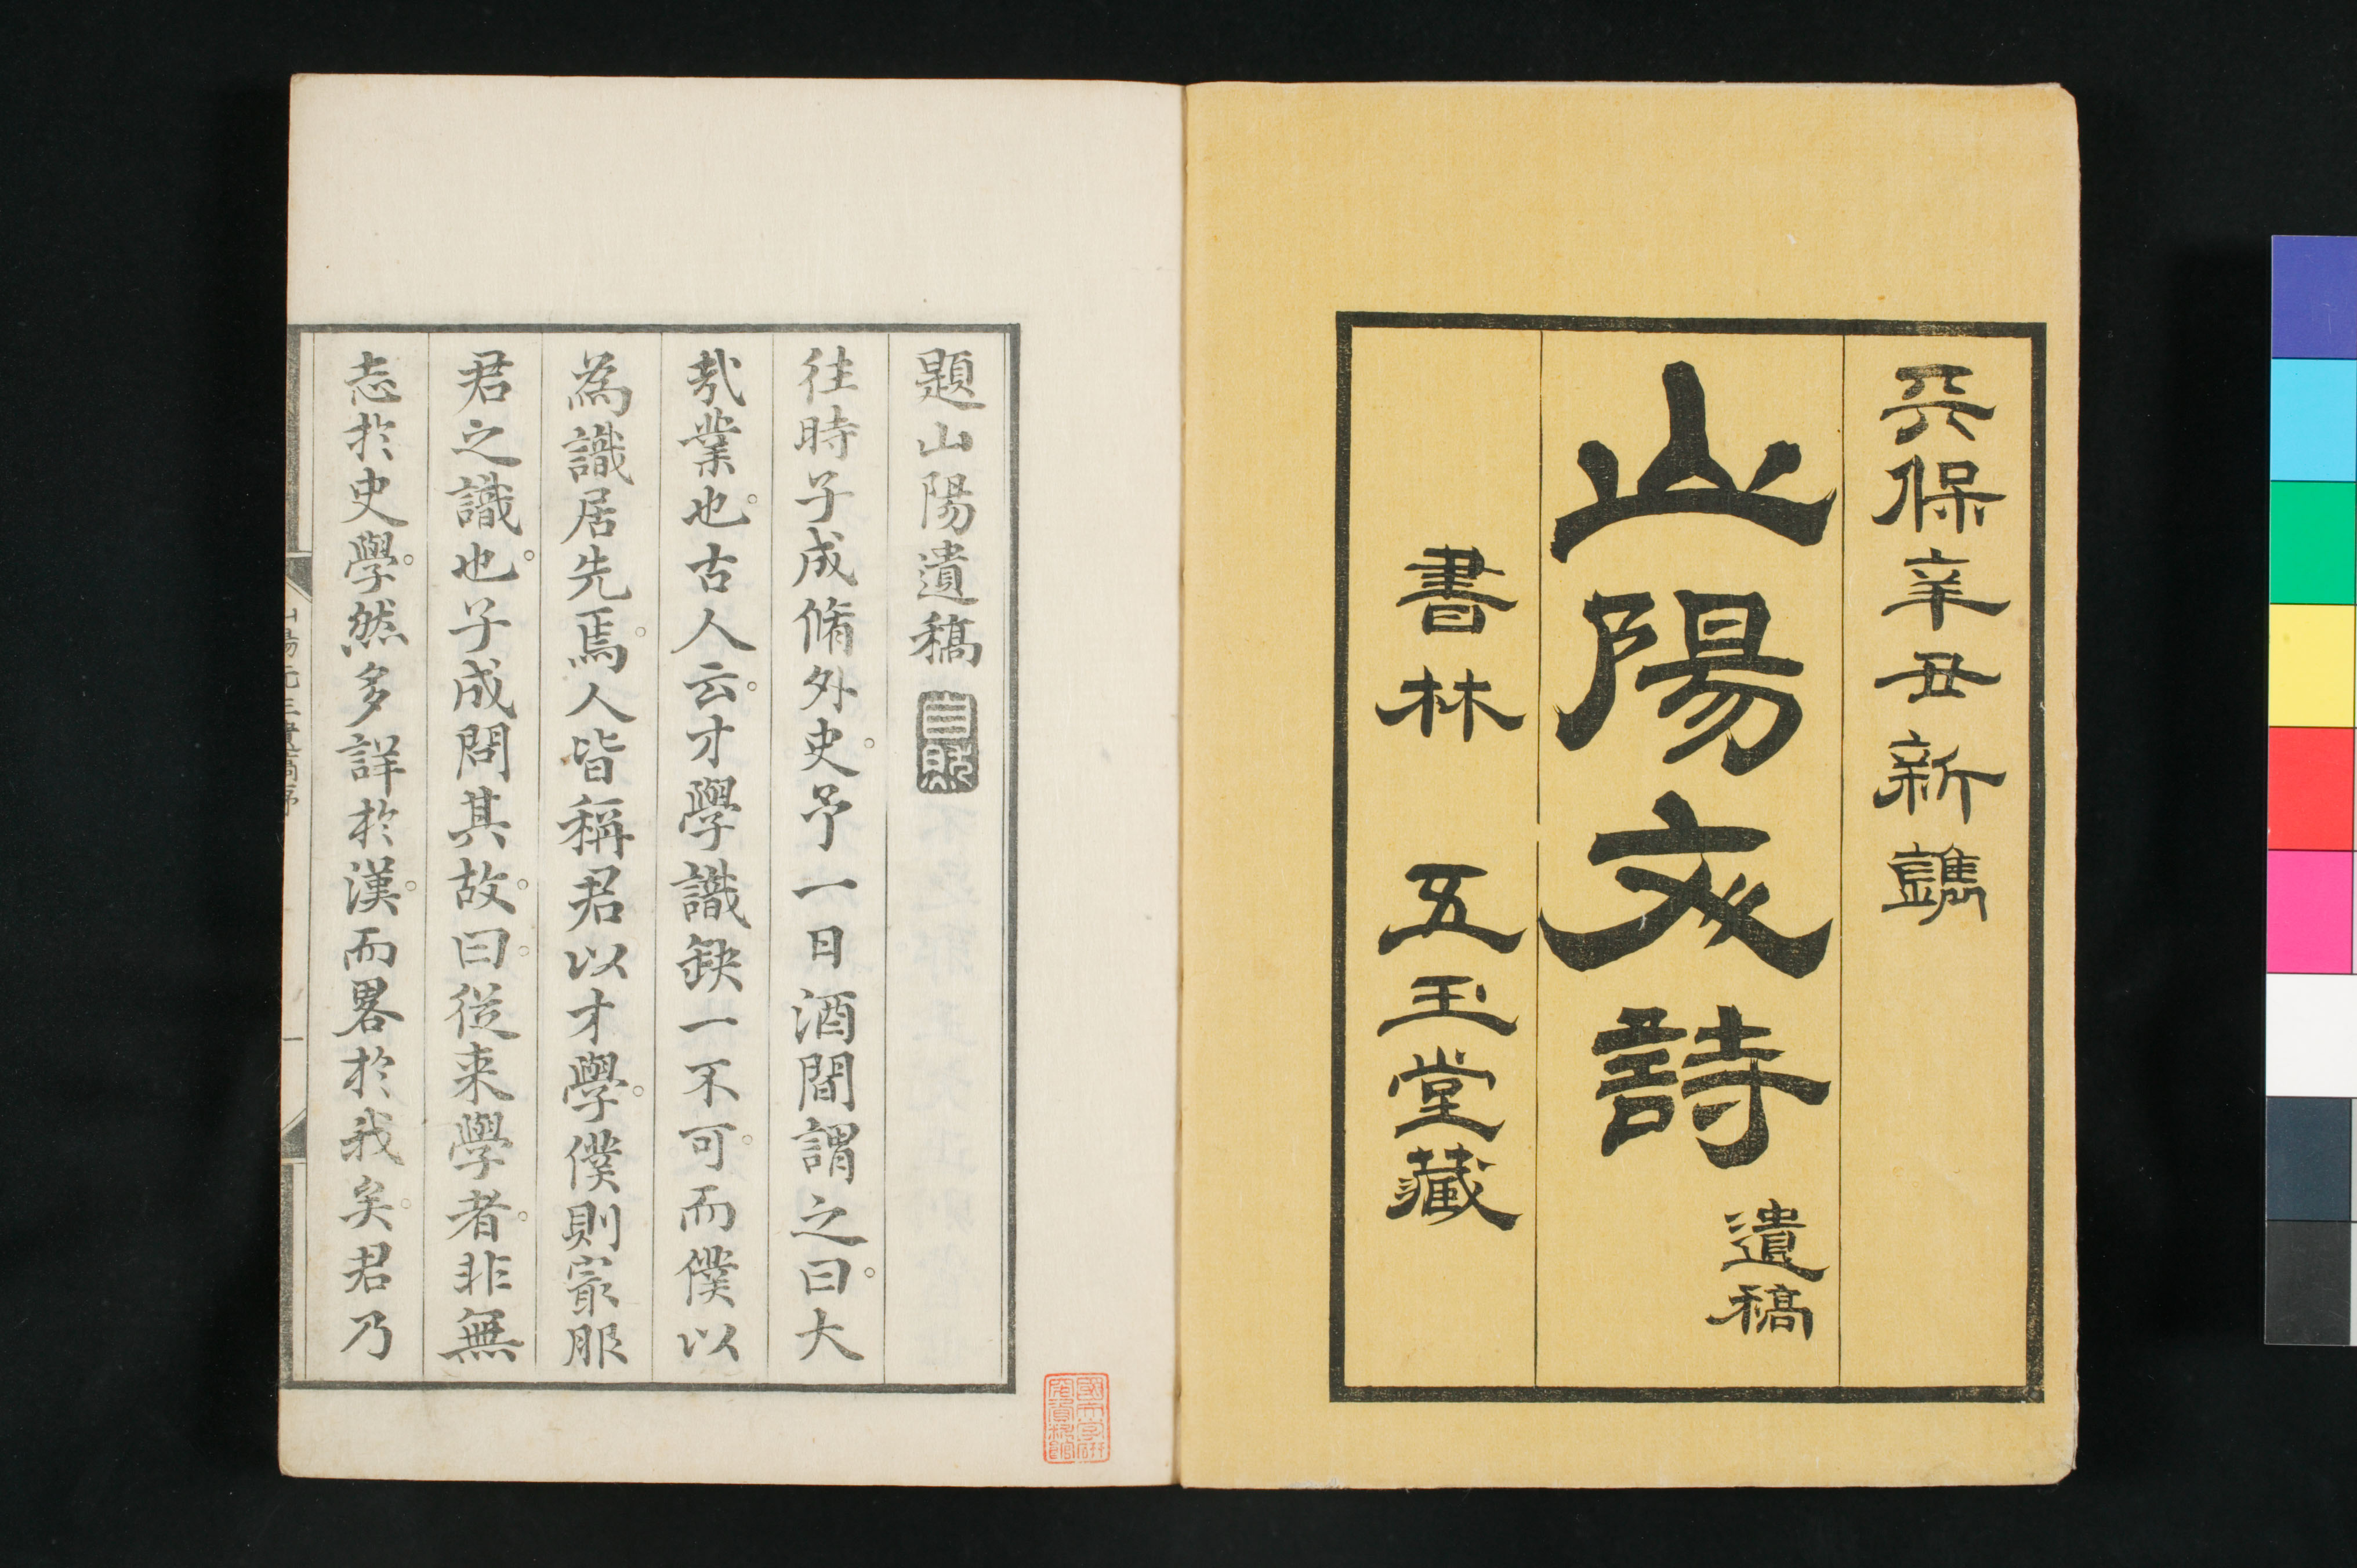 天保辛丑新鐫
山陽文詩
遺稿
書林 五玉堂藏
題山陽遺稿
往時子成脩外史。予一日酒間謂之曰。大
哉業也。古人云。才學識缺一不可。而僕以
為識居先焉。人皆稱君以才學。僕則㝡服
君之識也。子成問其故。曰。從来學者。非無
志於史學。然多詳於漢。而畧於我矣。君乃